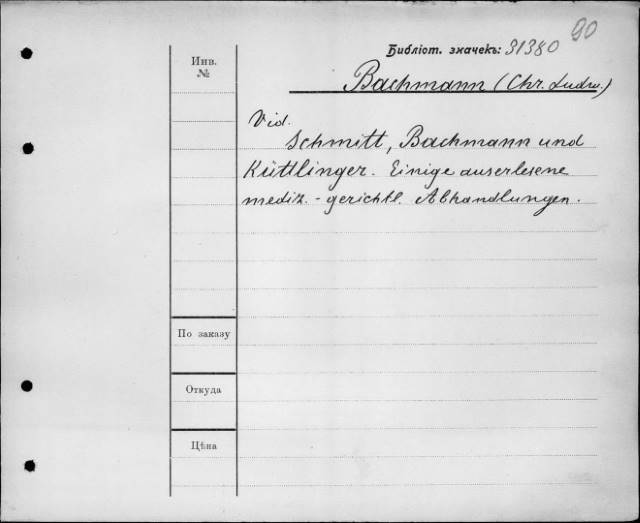 90
Библіот. значекъ: 31380
Bachmann (Chr. Ludw.)
Инв.
№
Vid.
Schmitt, Bachmann und
Küttlinger. Einige auserlesene
mediz.-gerichtl. Abhandlungen.
По заказу
Откуда
Цѣна